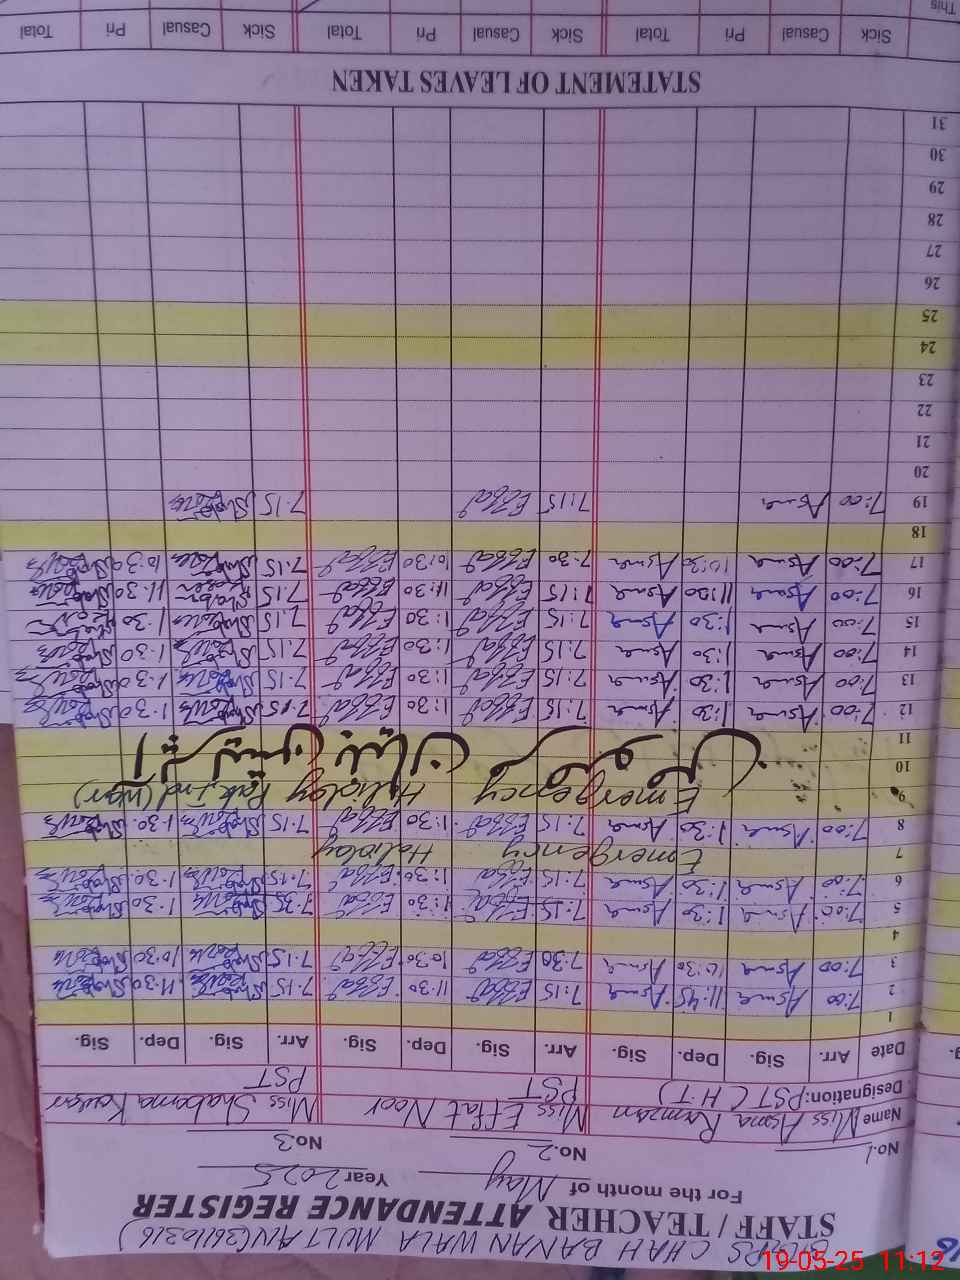 CHAH BANAN WALA MULTAN (36110316)
STAFF / TEACHER ATTENDANCE REGISTER
For the month of May Year 2025
No.1 No.2 No.3
Name Miss Asma Ramzan Miss Effat Noor Miss Shabana Kousar
Designation: PST (H.T) PST PST
Date Arr. Sig. Dep. Sig. Arr. Sig. Dep. Sig. Arr. Sig. Dep. Sig.
1
2 7:00 Asma 11:45 Asma 7:15 Effat 11:30 Effat 7:15 11:30
3 7:00 Asma 10:30 Asma 7:30 Effat 10:30 Effat 7:15 10:30
4
5 7:00 Asma 1:30 Asma 7:15 Effat 1:30 Effat 1:30
6 7:00 Asma 1:30 Asma 7:15 Effat 1:30 Effat 7:15 1:30
7 Emergency Haliolay
8 7:00 Asma 1:30 Asma 7:15 Effat 1:30 Effat 7:15 1:30
9 Emergency Haliolay Pak Ind (War)
10
11
12 7:00 Asma 1:30 Asma 7:15 Effat 1:30 Effat 7:15 1:30
13 7:00 Asma 1:30 Asma 7:15 Effat 1:30 Effat 7:15 1:30
14 7:00 Asma 1:30 Asma 7:15 Effat 1:30 Effat 7:15 1:30
15 7:00 Asma 1:30 Asma 7:15 Effat 1:30 Effat 7:15 1:30
16 7:00 Asma 11:00 Asma 7:15 Effat 11:30 Effat 7:15 11:30
17 7:00 Asma 10:30 Asma 7:30 Effat 10:30 Effat 7:15 10:30
18
19 7:00 Asma 7:15 Effat 7:15
20
21
22
23
24
25
26
27
28
29
30
31
STATEMENT OF LEAVES TAKEN
Sick Casual Pri Total Sick Casual Pri Total Sick Casual Pri Total
This
19-05-25 11:12